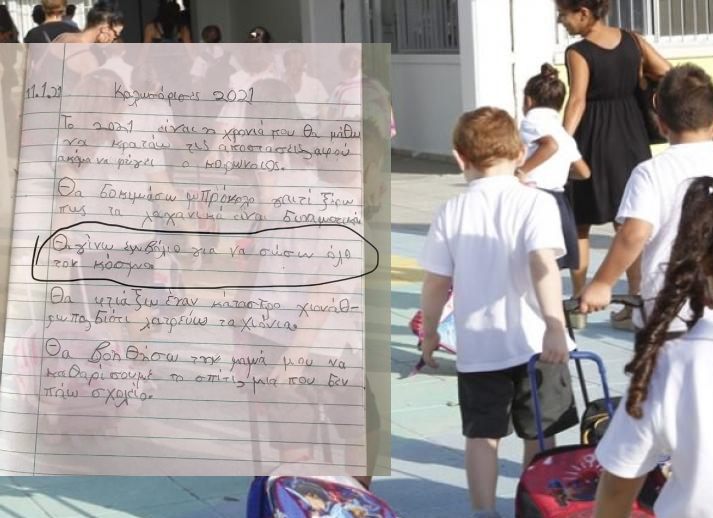 11.1.21
Καλωσόρισες 2021
Το 2021 είναι η χρονιά που θα μάθω
να κρατάω τις αποστάσεις αφού
ακόμα να φύγει ο κορωνοιός.
Θα δοκιμάσω μπρόκολο γιατί ξέρω
πως τα λαχανικά είναι δυναμωτικά
Θα γίνω εμβόλιο για να σώσω όλο
τον κόσμο.
Θα φτιάξω έναν κάτασπρο χιονάθ-
ρωπο διότι λατρεύω τα χιόνια.
Θα βοηθήσω την μαμά μου να
καθαρίσουμε το σπίτι, μια που δεν
πάω σχολείο.